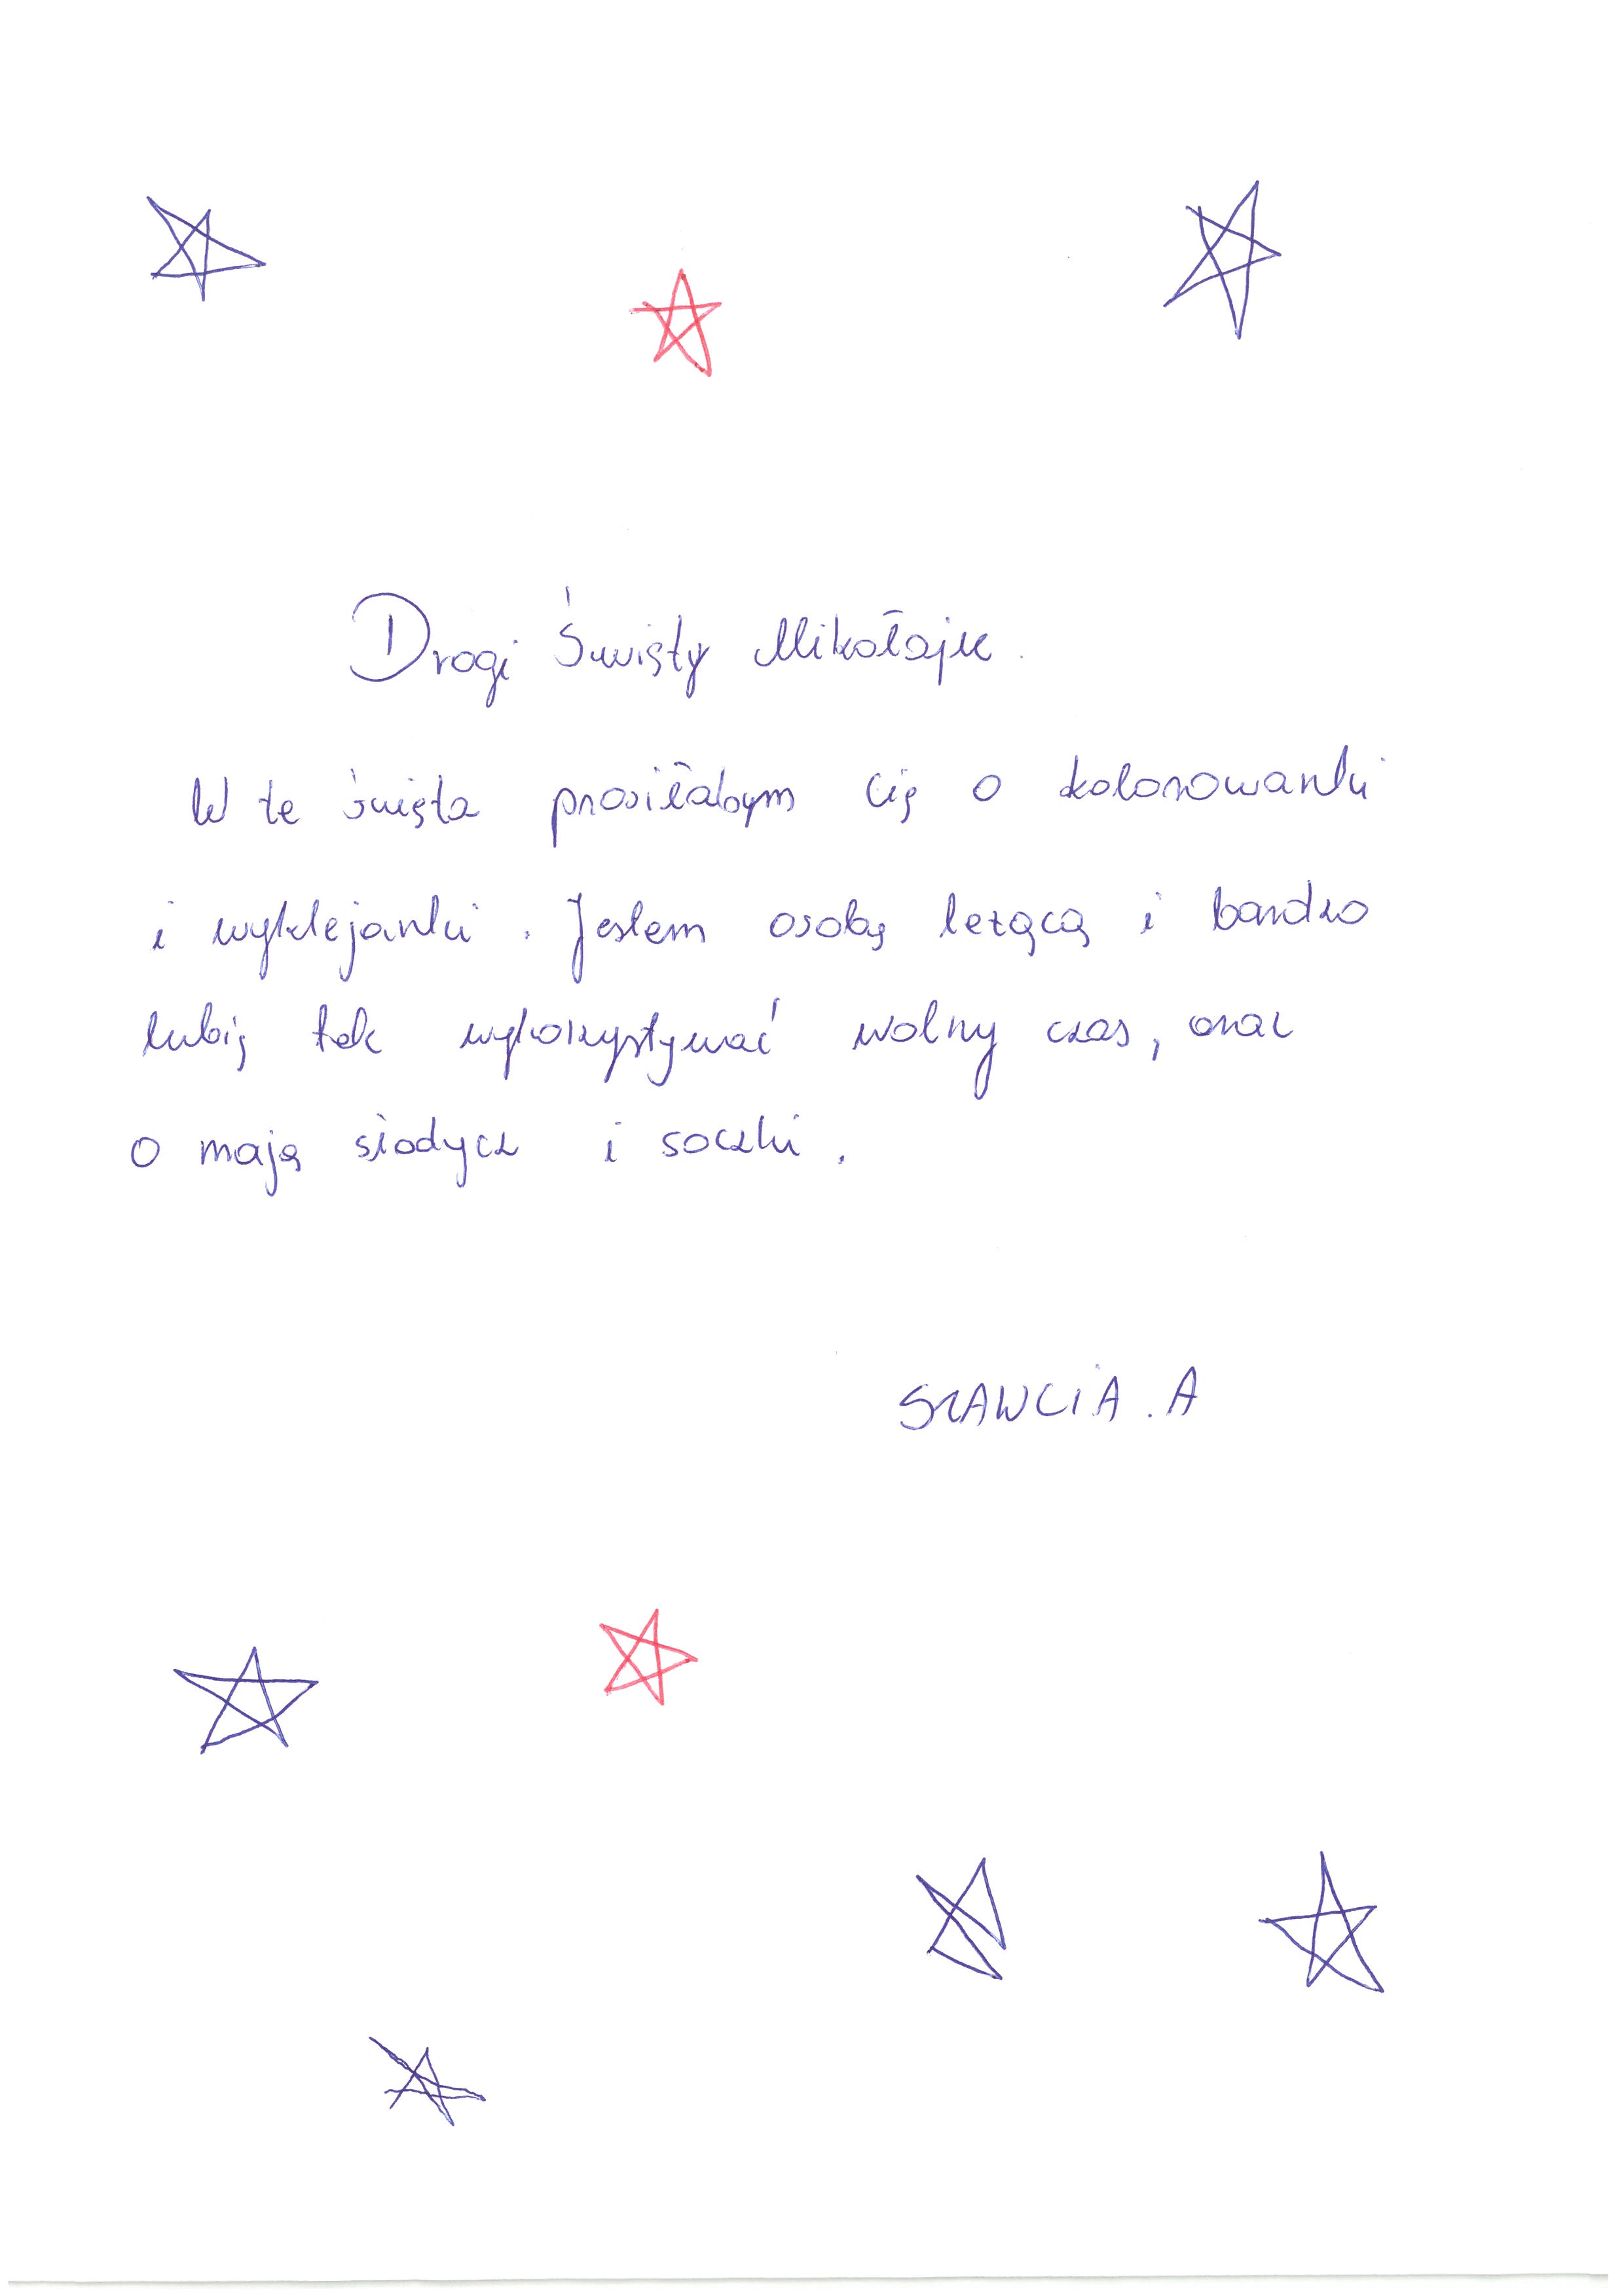 Drogi Święty Mikołaju.
W te święta prosiłabym Cię o kolorowanki
i wyklejanki. Jestem osobą leżącą i bardzo
lubię tak wykorzystywać wolny czas, oraz
o moją słodycz i soczki.
SZAWCIA. A